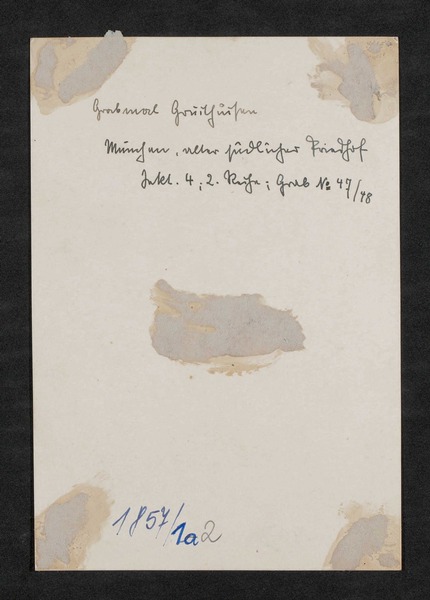 Grabmal Gruithuisen
München, alter südlicher Friedhof
Sekt. 4; 2. Reihe; Grab № 47/48
1857/1a2